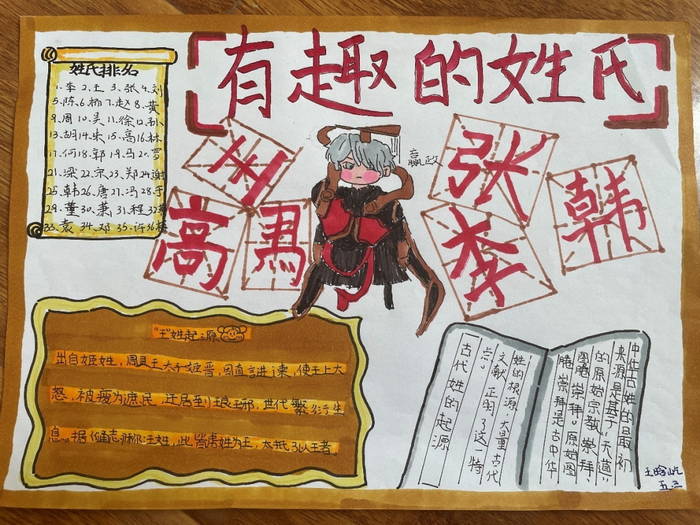 有趣的姓氏
姓氏排名
1.李 2.王 3.张 4.刘
5.陈 6.杨 7.赵 8.黄
9.周 10.吴 11.徐 12.孙
13.胡 14.朱 15.高 16.林
17.何 18.郭 19.马 20.罗
21.梁 22.宋 23.郑 24.谢
25.韩 26.唐 27.冯 28.于
29.董 30.萧 31.程 32.
33.袁 34.邓 35.许 36.
王
高
馬
嬴政
张
李
韩
"王"姓起源
出自姬姓，周灵王太子姬晋，因直言进谏，使王上大
怒，被废为庶民，迁居到琅琊，世代繁衍生
息。据《通志》称：王姓，此皆虏姓为王，大抵引以王者。
中华古姓的最初
来源是基于"天道"
的原始宗教崇拜、
图腾崇拜。原始图
腾崇拜是古中华
姓的根源，大量古代
文献正明了这一特
点。
古代姓的起源
五三